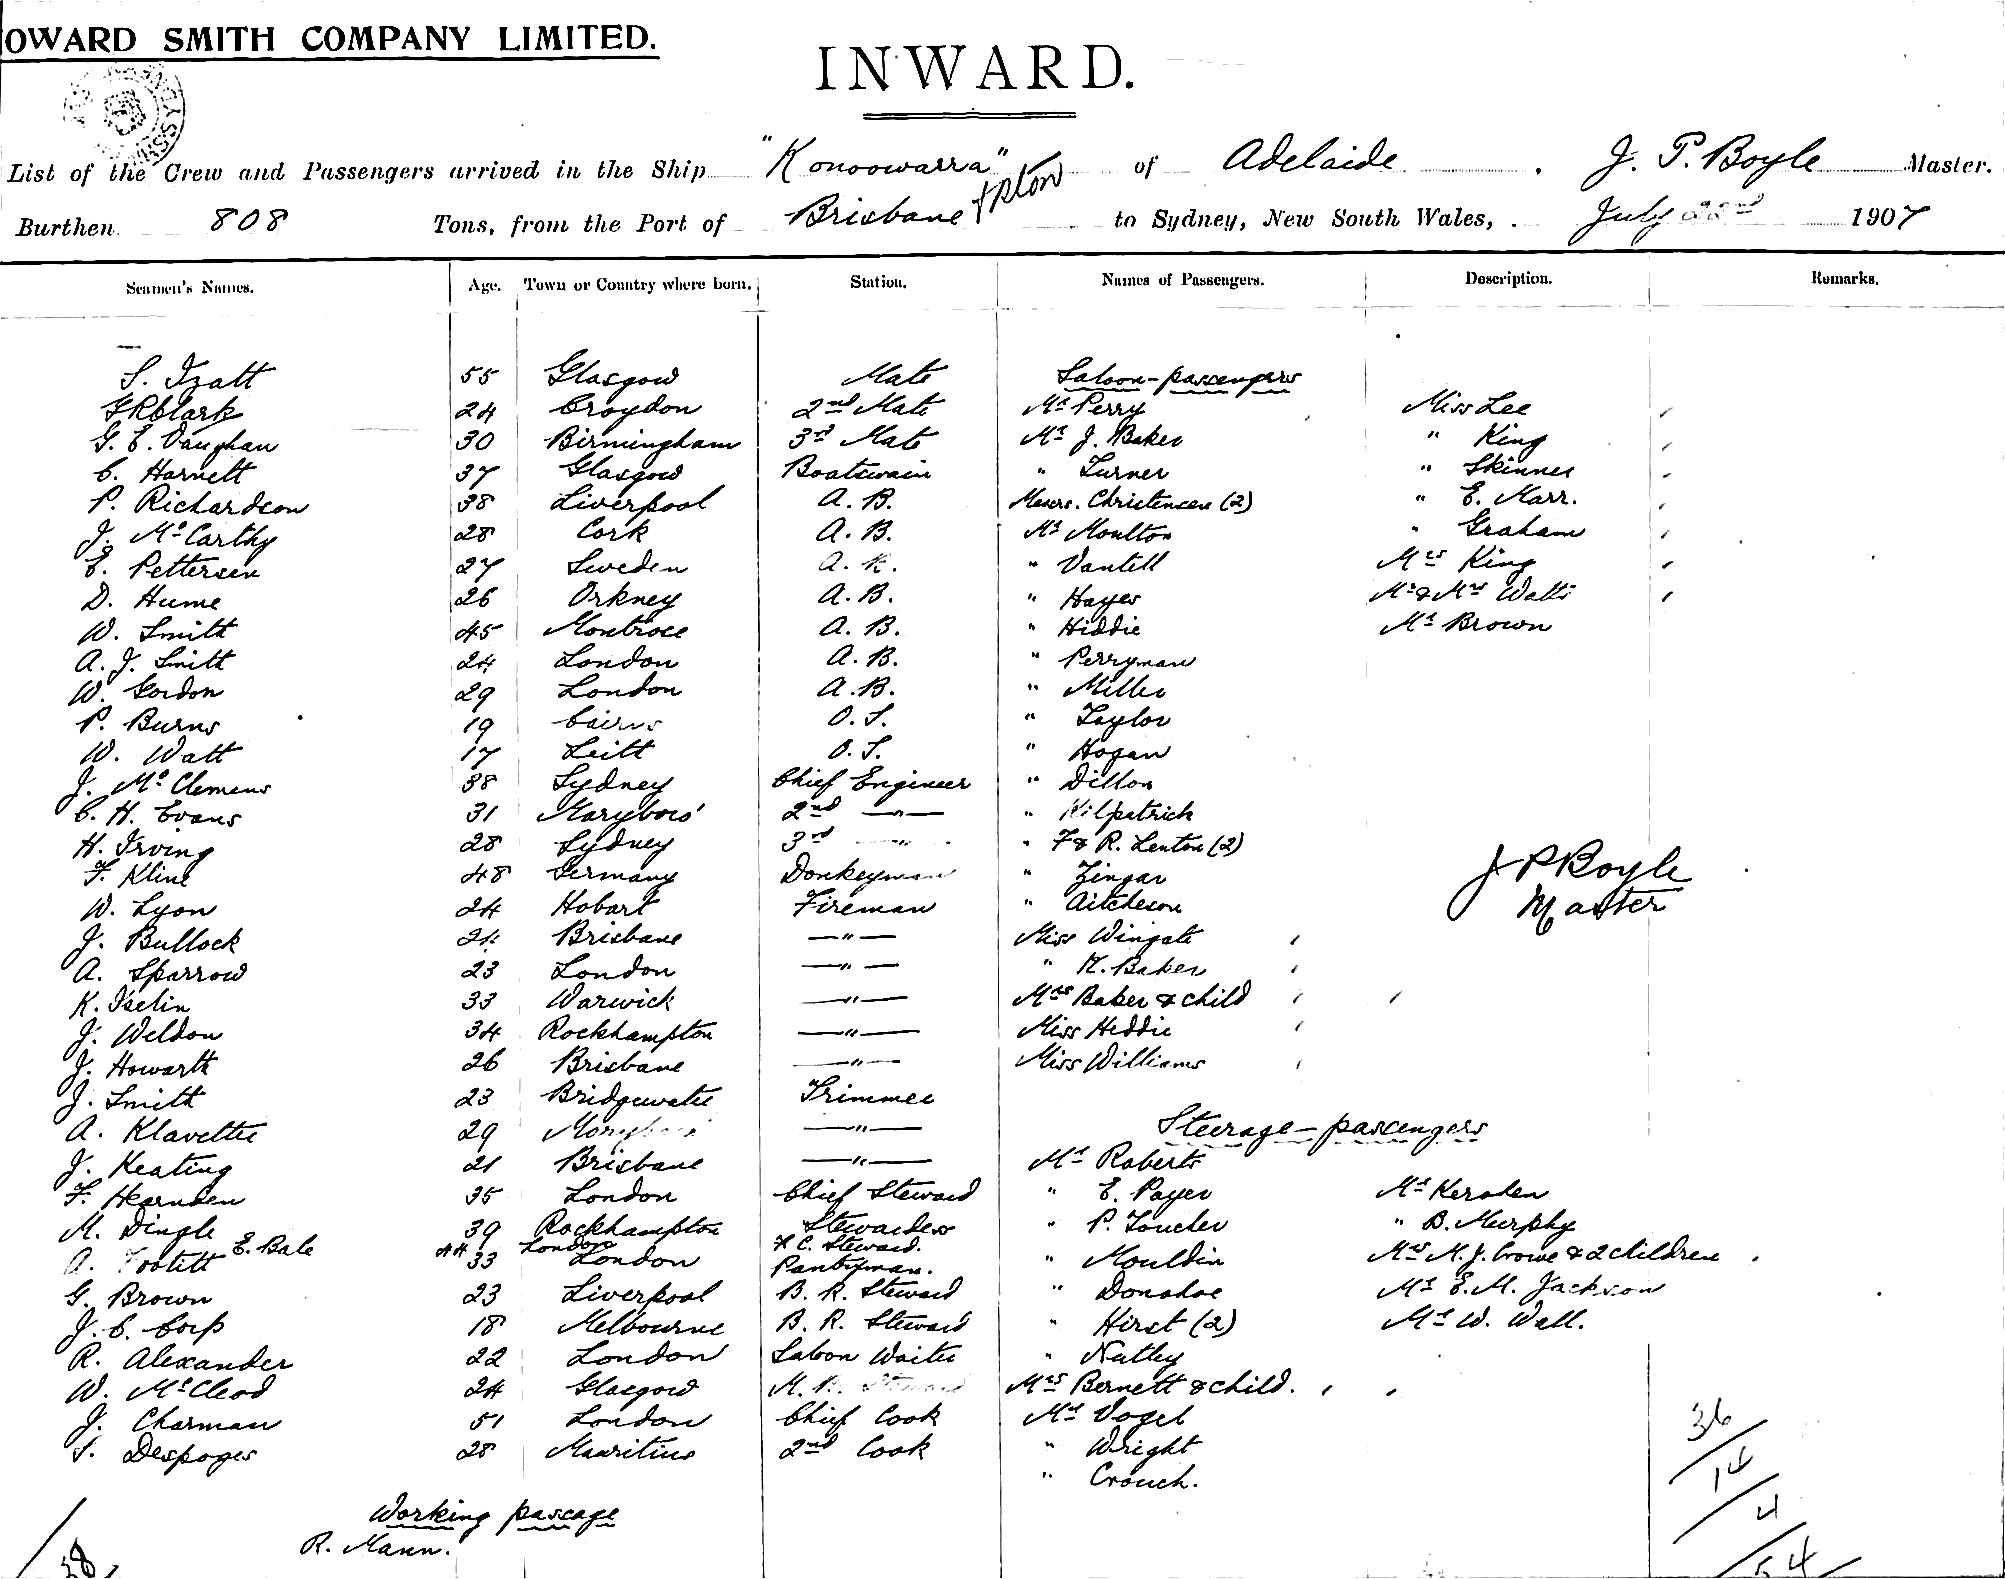 OWARD SMITH COMPANY LIMITED.
INWARD.
List of the Crew and Passengers arrived in the Ship "Konoowarra" of Adelaide. J. P. Boyle Master.
Burthen 808 Tons, from the Port of Brisbane to Sydney, New South Wales, July 22nd 1907
Seamen's Names. Age. Town or Country where born. Station. Names of Passengers. Description. Remarks.
S. Izatt 55 Glasgow Mate Saloon-passengers
G R Clark 24 Croydon 2nd Mate Mr Perry Miss Lee
G. E. Vaughan 30 Birmingham 3rd Mate Mr J. Baker " King
C. Harnett 37 Glasgow Boatswain " Turner " Skinner
P. Richardson 38 Liverpool A. B. Messrs. Christensen (2) " E. Marr.
J. McCarthy 28 Cork A. B. Mr Moulton " Graham
E. Pettersen 27 Sweden A. B. " Vantell Mrs King
D. Hume 26 Orkney A. B. " Hayes Mr & Mrs Watts
W. Smith 45 Montrose A. B. " Hiddie Mr Brown
A. J. Smith 24 London A. B. " Perryman
W. Gordon 29 London A. B. " Miller
P. Burns 19 Cairns O. S. " Taylor
W. Watt 17 Leith O. S. " Hogan
J. McClemens 38 Sydney Chief Engineer " Dillon
C. H. Evans 31 Maryboro' 2nd —"— " Kilpatrick
H. Irving 28 Sydney 3rd —"— " F & R. Lenton (2)
F. Kline 48 Germany Donkeyman " Zingar
J P Boyle
W. Lyon 24 Hobart Fireman " Aitcheson
Master
J. Bullock 24 Brisbane —"— Miss Wingate
A. Sparrow 23 London —"— " K. Baker
K. Iselin 33 Warwick —"— Mrs Baker & child
J. Weldon 34 Rockhampton —"— Miss Heddie
J. Howarth 26 Brisbane —"— Miss Williams
J. Smith 23 Bridgewater Trimmer
A. Klavette 29 Maryboro' —"— Steerage-passengers
J. Keating 21 Brisbane —"— Mr Roberts
F. Hearnden 35 London Chief Steward " E. Payer Mr Kersten
M. Dingle 39 Rockhampton Stewardess " P. Toucher " B. Murphy
E. Bale 44 London F C. Steward.
A. Footitt 33 London Pantryman. " Mouldin Mrs M. J. Crowe & 2 children
G. Brown 23 Liverpool B. R. Steward " Donohoe Mr E. M. Jackson
J. C. Corp 18 Melbourne B. R. Steward " Hirst (2) Mr W. Wall.
R. Alexander 22 London Saloon Waiter " Nutley
W. McCleod 24 Glasgow M. R. Steward Mrs Bernett & child.
J. Charman 51 London Chief Cook Mr Vogel
S. Despoges 28 Mauritius 2nd Cook " Wright
" Crouch.
Working passage
R. Mann.
38
36
14
4
54